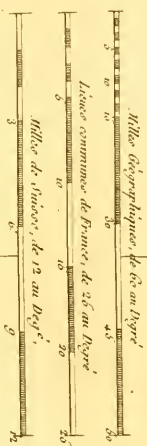 Milles Géographiques, de 60 au Degré
5 10 15 30 45 60
Lieues communes de France, de 25 au Degré
5 10 20 25
Milles de Suisse, de 12 au Degré
3 6 9 12